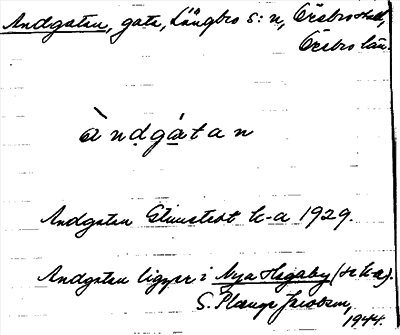 Andgatan, gata, Längbro s:n, Örebro stad,
Örebro län.
àndgátan
Andgatan Elmstedt k-a 1929.
Andgatan ligger i Nya Hagaby (se k-a).
S. Plaenge Jacobson,
1944.